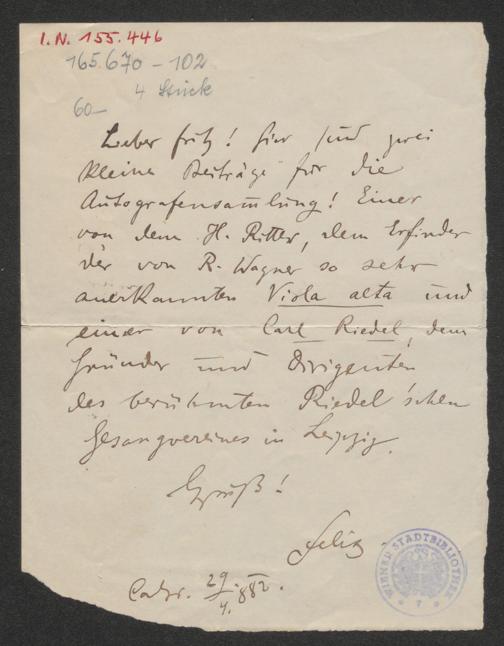 I.N. 155.446
165.670 - 102
4 Stück
60—
Lieber Fritz! Hier sind zwei
kleine Beiträge für die
Autografensammlung! Einer
von dem H. Ritter, dem Erfinder
der von R. Wagner so sehr
anerkannten Viola alta und
einer von Carl Riedel, dem
Gründer und Dirigenten
des berühmten Riedel'schen
Gesangvereines in Leipzig.
Gruß!
Felix
29/4. 882.
WIENER STADTBIBLIOTHEK
* 7 *